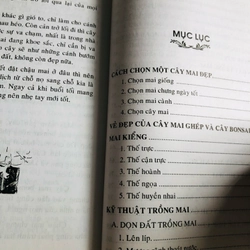 khác gì gió to, chỉ làm cho cánh
héo. Còn cản trở lối đi thì cây
sự va chạm, nhất là trong nhà
đang khoe sắc, chỉ cần bị va
cây sẽ như những cành trơ
đó, không còn đẹp nữa.
đặt chậu mai ở đâu thì nên
dịch từ chỗ nọ sang chỗ kia
n. Ngay cả khi buổi tối mang
ng nên nhẹ tay mới tốt.
MỤC LỤC
CÁCH CHỌN MỘT CÂY MAI ĐẸP
1. Chọn mai giống
2. Chọn mai chưng ngày tết
3. Chọn mai cành
4. Chọn cây mai
VẺ ĐẸP CỦA CÂY MAI GHÉP VÀ CÂY BONSAI
MAI KIỂNG
1. Thế trực
2. Thế cận trực
3. Thế hoành
4. Thế ngọa
5. Thế huyền nhai
KỸ THUẬT TRỒNG MAI
A. DỌN ĐẤT TRỒNG MAI
1. Lên líp